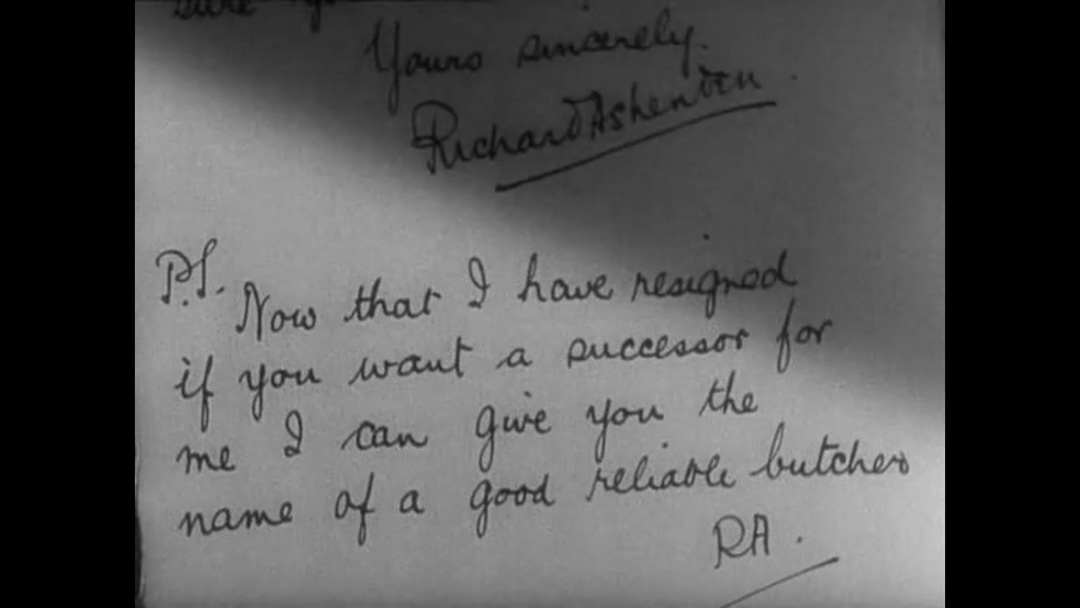 Yours sincerely.
Richard Ashenden.
P.S. Now that I have resigned
if you want a successor for
me I can give you the
name of a good reliable butcher
RA.